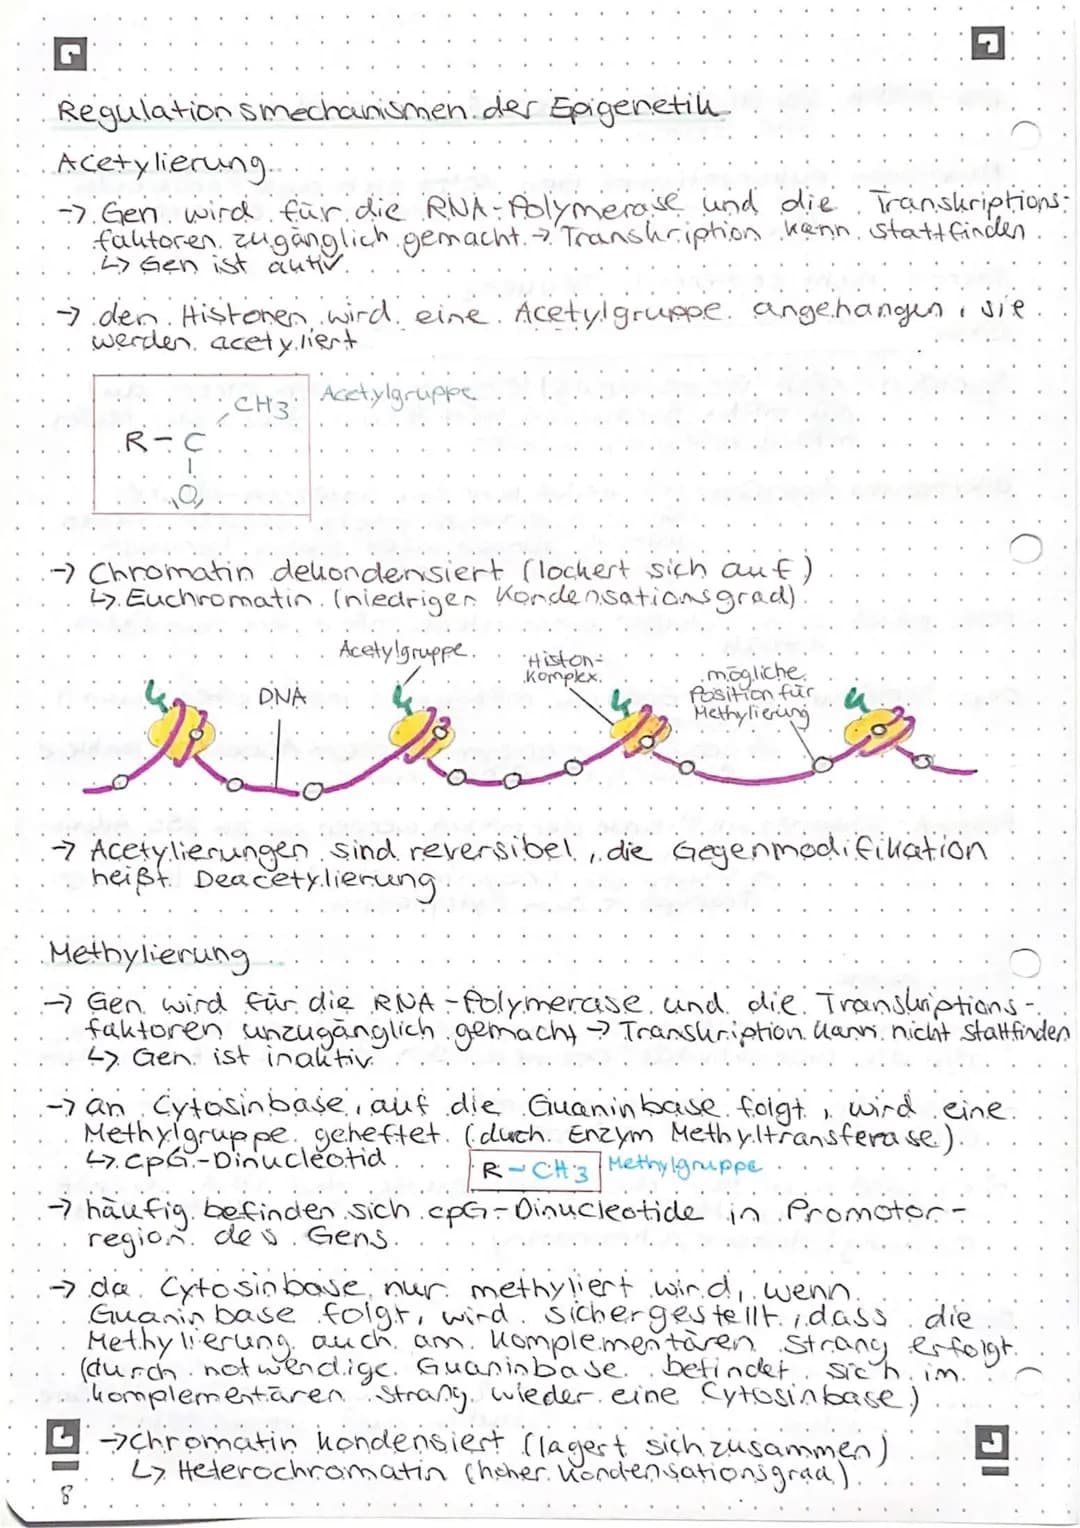 Regulationsmechanismen der Epigenetik
Acetylierung
→ Gen wird für die RNA-Polymerase und die Transkriptions-
faktoren zugänglich gemacht → Transkription kann stattfinden
↳ Gen ist aktiv
→ den Histonen wird eine Acetylgruppe angehangen, sie
werden acetyliert
CH3 Acetylgruppe
R-C
O
→ Chromatin dekondensiert (lockert sich auf)
↳ Euchromatin (niedriger Kondensationsgrad)
Acetylgruppe
Histon-
Komplex
mögliche
Position für
Methylierung
DNA
→ Acetylierungen sind reversibel, die Gegenmodifikation
heißt Deacetylierung
Methylierung
→ Gen wird für die RNA-Polymerase und die Transkriptions-
faktoren unzugänglich gemacht → Transkription kann nicht stattfinden
↳ Gen ist inaktiv
→ an Cytosinbase, auf die Guaninbase folgt, wird eine
Methylgruppe geheftet (duch Enzym Methyltransferase)
↳ cpG-Dinucleotid
R-CH3 Methylgruppe
→ häufig befinden sich cpG-Dinucleotide in Promotor-
region des Gens
→ da Cytosinbase nur methyliert wird, wenn
Guaninbase folgt, wird sichergestellt, dass die
Methylierung auch am komplementären Strang erfolgt
(durch notwendige Guaninbase befindet sich im
komplementären Strang wieder eine Cytosinbase)
→ Chromatin kondensiert (lagert sich zusammen)
↳ Heterochromatin (hoher Kondensationsgrad)
8